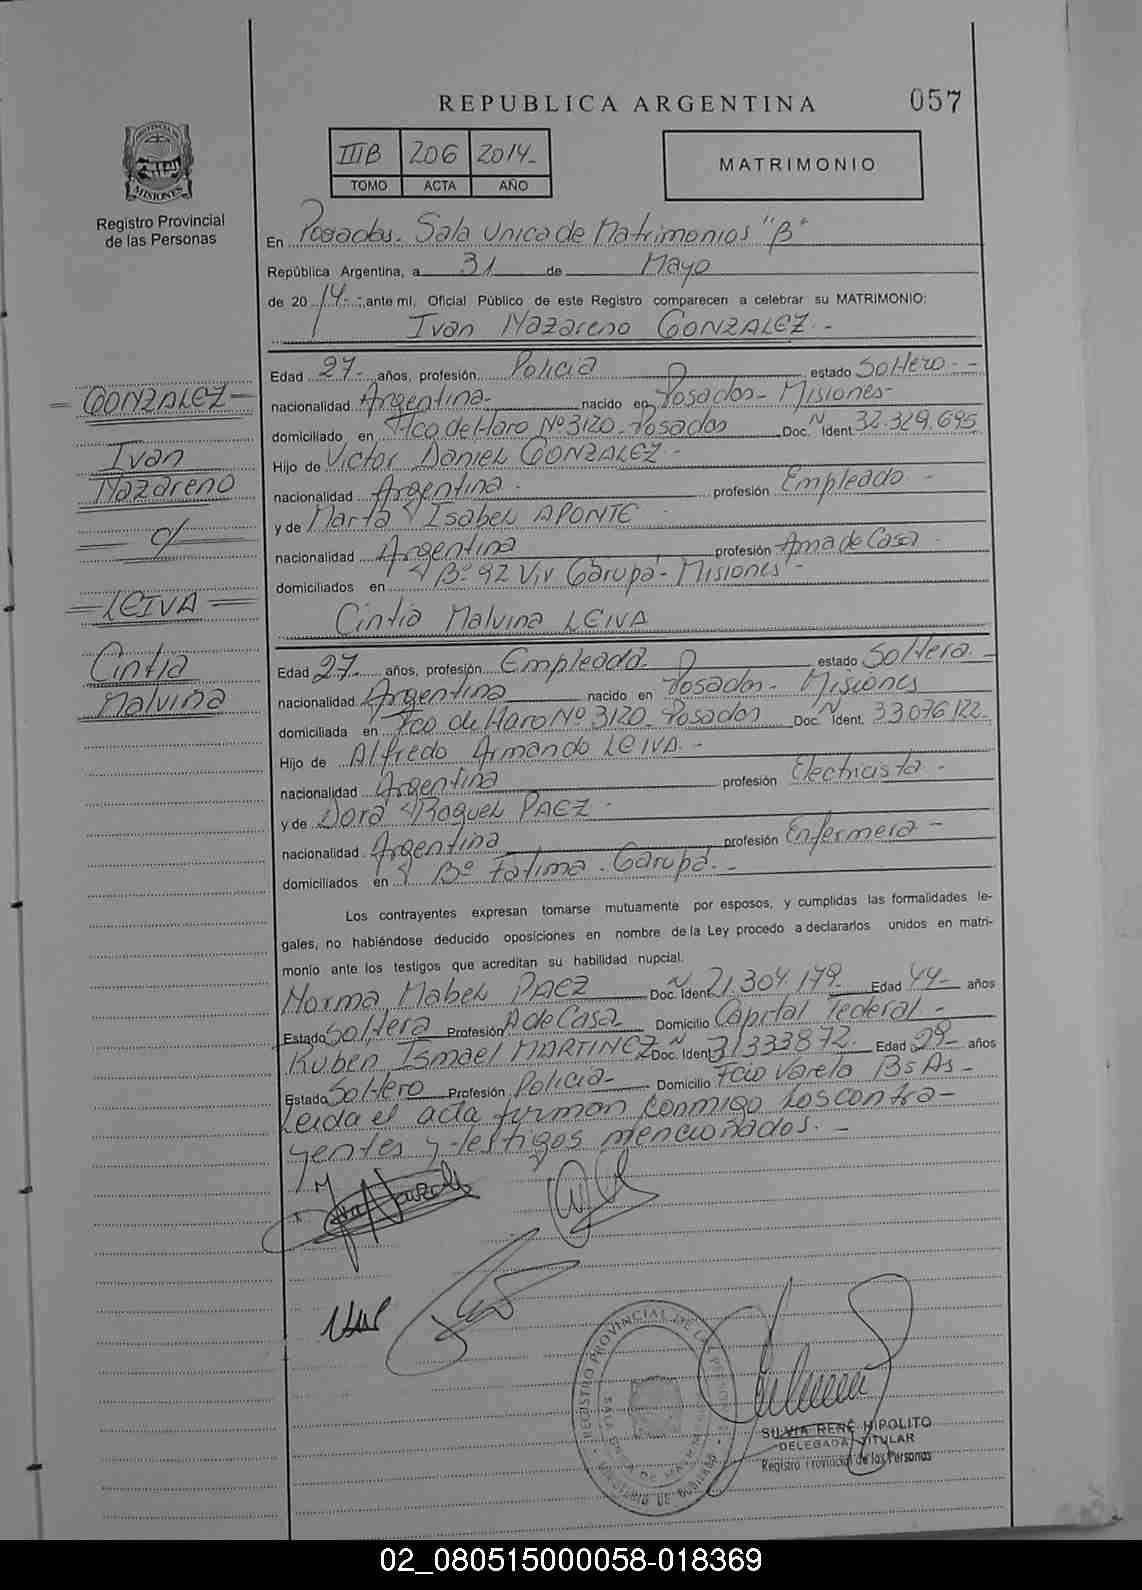 REPUBLICA ARGENTINA 057
PROVINCIA DE
MISIONES
Registro Provincial
de las Personas
IIIB 206 2014-
TOMO ACTA AÑO
MATRIMONIO
En Posadas. Sala Unica de Matrimonios "B"
República Argentina, a 31 de Mayo
de 20 14 - ante mí, Oficial Público de este Registro comparecen a celebrar su MATRIMONIO:
Ivan Nazareno GONZALEZ.-
Edad 27- años, profesión Policia estado Soltero -
nacionalidad Argentina- nacido en Posadas- Misiones-
domiciliado en Fco de Haro Nº 3120- Posadas Doc. Ident. 32.329.695
Hijo de Victor Daniel GONZALEZ-
nacionalidad Argentina. profesión Empleado -
y de Marta Isabel APONTE
nacionalidad Argentina profesión Ama de Casa.
domiciliados en Bº 92 Viv Garupá- Misiones-
Cintia Malvina LEIVA
Edad 27- años, profesión Empleada estado Soltera-
nacionalidad Argentina nacido en Posadas- Misiones
domiciliada en Fco de Haro Nº 3120- Posadas Doc. Ident. 33.076.122-
Hijo de Alfredo Armando LEIVA.-
nacionalidad Argentina profesión Electricista-
y de Dora Raquel PAEZ-
nacionalidad Argentina profesión Enfermera-
domiciliados en Bº Fatima. Garupá.-
Los contrayentes expresan tomarse mutuamente por esposos, y cumplidas las formalidades le-
gales, no habiéndose deducido oposiciones en nombre de la Ley procedo a declararlos unidos en matri-
monio ante los testigos que acreditan su habilidad nupcial.
Norma Mabel PAEZ Doc. Ident. 21.304.179- Edad 44- años
Estado Soltera Profesión A de Casa Domicilio Capital Federal-
Ruben Ismael MARTINEZ Doc. Ident. 31333872. Edad 29- años
Estado Soltero Profesión Policia- Domicilio Fcio Varela Bs As-
Leida el acta firman conmigo los contra-
yentes y testigos mencionados.-
= GONZALEZ =
Ivan
Nazareno
c/
= LEIVA =
Cintia
Malvina
REGISTRO PROVINCIAL DE LAS PERSONAS
SILVIA RENÉ HIPOLITO
DELEGADA TITULAR
Registro Provincial de las Personas
02_080515000058-018369